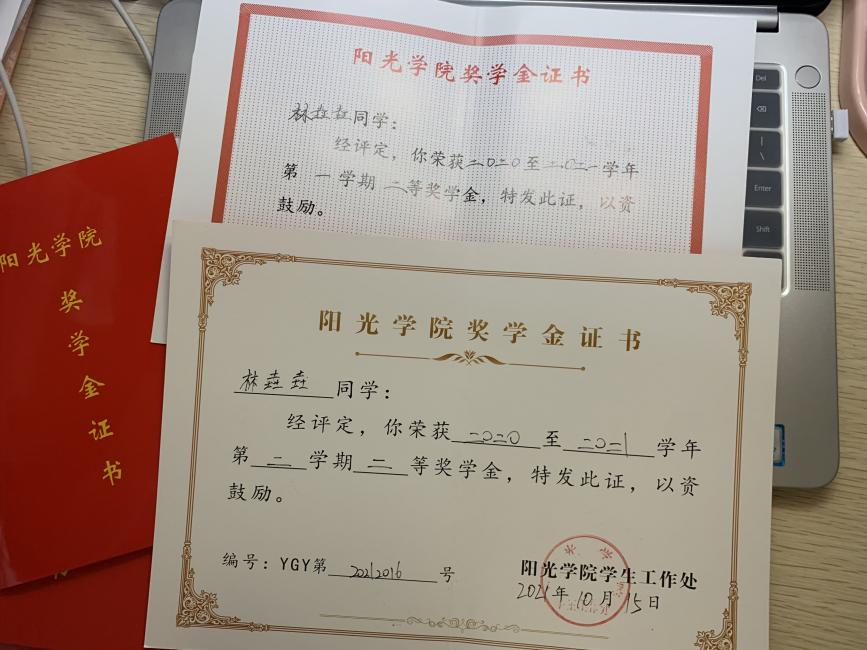 阳光学院奖学金证书
林垚垚同学：
经评定，你荣获二〇二〇至二〇二一学年
第一学期二等奖学金，特发此证，以资
鼓励。
阳光学院
奖学金证书
阳光学院奖学金证书
林垚垚同学：
经评定，你荣获二〇二〇至二〇二1学年
第二学期二等奖学金，特发此证，以资
鼓励。
编号：YGY第20212016号
阳光学院学生工作处
2021年10月15日
Del
Enter
Shift